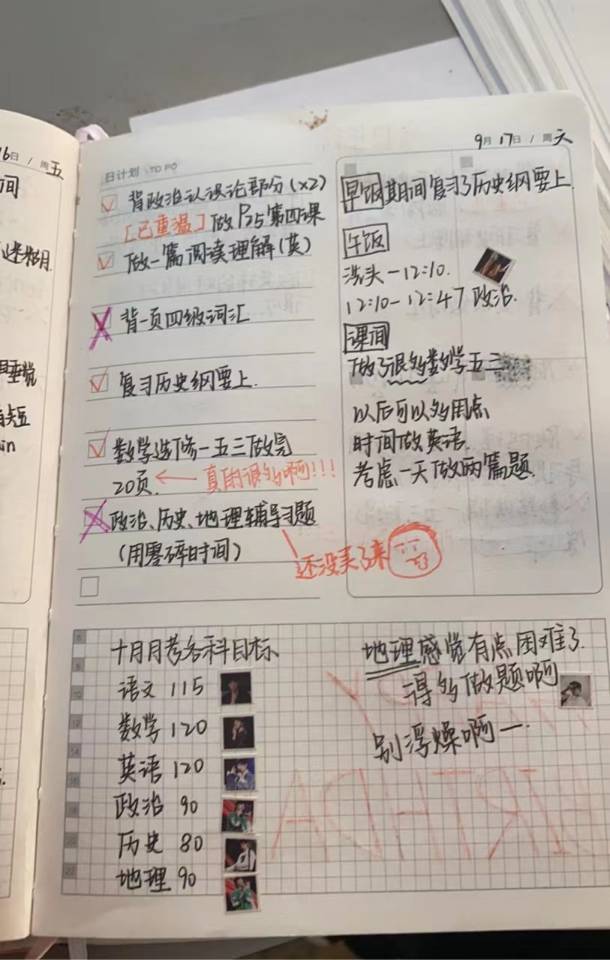 16日 / 周五
间
日计划 \ TO DO
背政治认识论部分(×2)
[已重温] 做P25第四课
做一篇阅读理解(英)
背一页四级词汇
复习历史纲要上.
数学选修一五三做完
20页. ← 真的很多啊!!!
政治、历史、地理辅导习题
(用零碎时间)
还没买了来
9月17日 / 周天
早饭期间复习了历史纲要上.
午饭
洗头-12:10.
12:10-12:47 政治.
课间
做了很多数学五三
以后可以多用点
时间做英语.
考虑一天做两篇题.
十月月考各科目标
语文 115
数学 120
英语 120
政治 90
历史 80
地理 90
地理感觉有点困难了.
得多做题啊
别浮燥啊一.